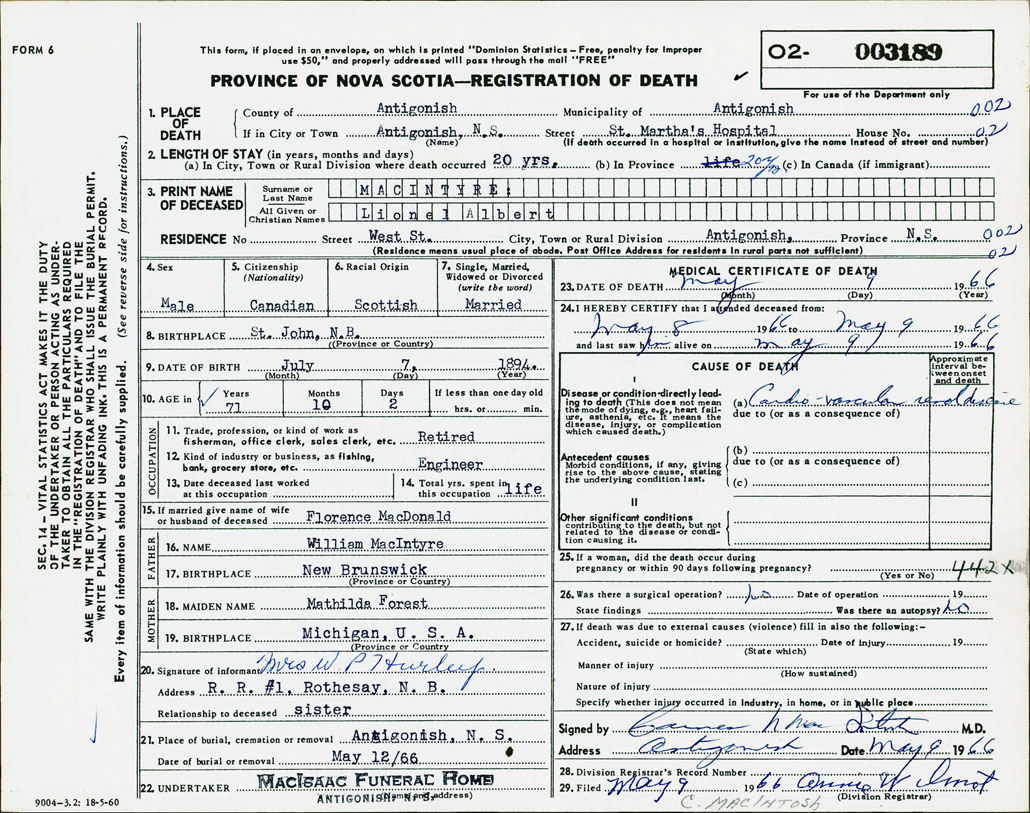 FORM 6
This form, if placed in an envelope, on which is printed "Dominion Statistics – Free, penalty for improper
use $50," and properly addressed will pass through the mail "FREE"
PROVINCE OF NOVA SCOTIA—REGISTRATION OF DEATH ✓
02- 003189
For use of the Department only
SEC. 14 – VITAL STATISTICS ACT MAKES IT THE DUTY
OF THE UNDERTAKER OR PERSON ACTING AS UNDER-
TAKER TO OBTAIN ALL THE PARTICULARS REQUIRED
IN THE "REGISTRATION OF DEATH" AND TO FILE THE
SAME WITH THE DIVISION REGISTRAR WHO SHALL ISSUE THE BURIAL PERMIT.
WRITE PLAINLY WITH UNFADING INK. THIS IS A PERMANENT RECORD.
Every item of information should be carefully supplied. (See reverse side for instructions.)
1. PLACE OF DEATH
County of Antigonish Municipality of Antigonish 002
If in City or Town Antigonish, N.S. Street St. Martha's Hospital House No. 02
(Name) (If death occurred in a hospital or institution, give the name instead of street and number)
2. LENGTH OF STAY (in years, months and days)
(a) In City, Town or Rural Division where death occurred 20 yrs. (b) In Province life 20 y (c) In Canada (if immigrant)
3. PRINT NAME OF DECEASED
Surname or Last Name MACINTYRE:
All Given or Christian Names Lionel Albert
RESIDENCE No Street West St. City, Town or Rural Division Antigonish, Province N.S. 002
(Residence means usual place of abode. Post Office Address for residents in rural parts not sufficient) 02
4. Sex Male
5. Citizenship (Nationality) Canadian
6. Racial Origin Scottish
7. Single, Married, Widowed or Divorced (write the word) Married
8. BIRTHPLACE St. John, N.B.
(Province or Country)
9. DATE OF BIRTH July 7, 1894.
(Month) (Day) (Year)
10. AGE in ✓ Years 71 Months 10 Days 2 If less than one day old hrs. or min.
OCCUPATION
11. Trade, profession, or kind of work as
fisherman, office clerk, sales clerk, etc. Retired
12. Kind of industry or business, as fishing,
bank, grocery store, etc. Engineer
13. Date deceased last worked
at this occupation
14. Total yrs. spent in
this occupation life
15. If married give name of wife
or husband of deceased Florence MacDonald
FATHER
16. NAME William MacIntyre
17. BIRTHPLACE New Brunswick
(Province or Country)
MOTHER
18. MAIDEN NAME Mathilda Forest
19. BIRTHPLACE Michigan, U. S. A.
(Province or Country
20. Signature of informant Mrs W P Hurley
Address R. R. #1, Rothesay, N. B.
Relationship to deceased sister
21. Place of burial, cremation or removal Antigonish, N. S.
Date of burial or removal May 12/66
22. UNDERTAKER MACISAAC FUNERAL HOME
ANTIGONISH, N. S.
(Name and address)
9004-3.2: 18-5-60
MEDICAL CERTIFICATE OF DEATH
23. DATE OF DEATH May 9 1966
(Month) (Day) (Year)
24. I HEREBY CERTIFY that I attended deceased from:
May 8 1966 to May 9 1966
and last saw him alive on May 9 1966
CAUSE OF DEATH
Approximate interval between onset and death
I
Disease or condition directly lead-
ing to death (This does not mean
the mode of dying, e.g., heart fail-
ure, asthenia, etc. It means the
disease, injury, or complication
which caused death.)
(a) Cardio-vascular renal disease
due to (or as a consequence of)
Antecedent causes
Morbid conditions, if any, giving
rise to the above cause, stating
the underlying condition last.
(b)
due to (or as a consequence of)
(c)
II
Other significant conditions
contributing to the death, but not
related to the disease or condi-
tion causing it.
25. If a woman, did the death occur during
pregnancy or within 90 days following pregnancy?
(Yes or No) 442X
26. Was there a surgical operation? No Date of operation 19
State findings Was there an autopsy? No
27. If death was due to external causes (violence) fill in also the following:–
Accident, suicide or homicide? Date of injury 19
(State which)
Manner of injury
(How sustained)
Nature of injury
Specify whether injury occurred in industry, in home, or in public place
Signed by M.D.
Address Antigonish Date May 9 1966
28. Division Registrar's Record Number
29. Filed May 9 1966
(Division Registrar)
C. MACINTOSH